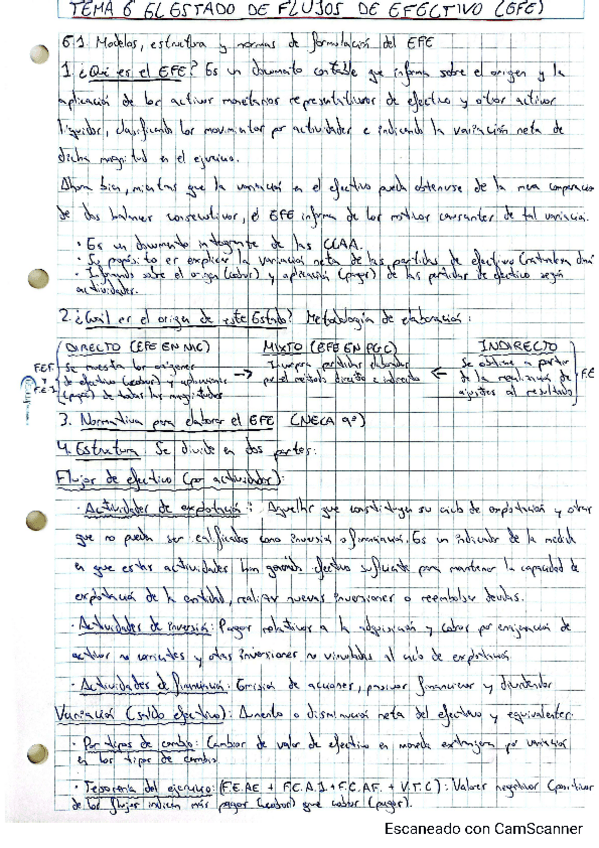 TEMA 6 EL ESTADO DE FLUJOS DE EFECTIVO (EFE)
6.1. Modelos, estructura y normas de formulación del EFE
1. ¿Qué es el EFE? Es un documento contable que informa sobre el origen y la
aplicación de los activos monetarios representativos de efectivo y otros activos
líquidos, clasificando los movimientos por actividades e indicando la variación neta de
dicha magnitud en el ejercicio.
Ahora bien, mientras que la variación en el efectivo puede obtenerse de la mera comparación
de dos balances consecutivos, el EFE informa de los motivos causantes de tal variación.
· Es un documento integrante de las CCAA.
· Su propósito es explicar la variación neta de las partidas de efectivo
· Informando sobre el origen (cobros) y aplicación (pagos) de las partidas de efectivo según
actividades.
2. ¿Cuál es el origen de este Estado? Metodología de elaboración:
DIRECTO (EFE EN NIC) MIXTO (EFE EN PGC) INDIRECTO
Se muestra los orígenes
de efectivo (cobros) y aplicaciones
(pagos) de todas las magnitudes
→ Incorpora partidas elaboradas
por el método directo e indirecto ←
Se obtiene a partir
de la realización de
ajustes al resultado
F.E.F.
y
F.E.I.
3. Normativa para elaborar el EFE (NECA 9ª)
4. Estructura: Se divide en dos partes:
Flujos de efectivo (por actividades):
· Actividades de explotación: Aquellas que constituyen su ciclo de explotación y otras
que no puedan ser calificadas como inversión o financiación. Es un indicador de la medida
en que estas actividades han generado efectivo suficiente para mantener la capacidad de
explotación de la entidad, realizar nuevas inversiones o reembolsar deudas.
· Actividades de inversión: Pagos relativos a la adquisición y cobros por enajenación de
activos no corrientes y otras inversiones no vinculadas al ciclo de explotación
· Actividades de financiación: Emisión de acciones, pasivos financieros y dividendos
Variación (saldo efectivo): Aumento o disminución neta del efectivo y equivalentes:
· Por tipos de cambio: Cambios de valor de efectivo en moneda extranjera por variación
en los tipos de cambio
· Tesorería del ejercicio: (F.E.AE + F.C.A.I + F.C.AF. + V.T.C): Valores negativos (positivos)
de los flujos indican más pagos (cobros) que cobros (pagos).
Escaneado con CamScanner